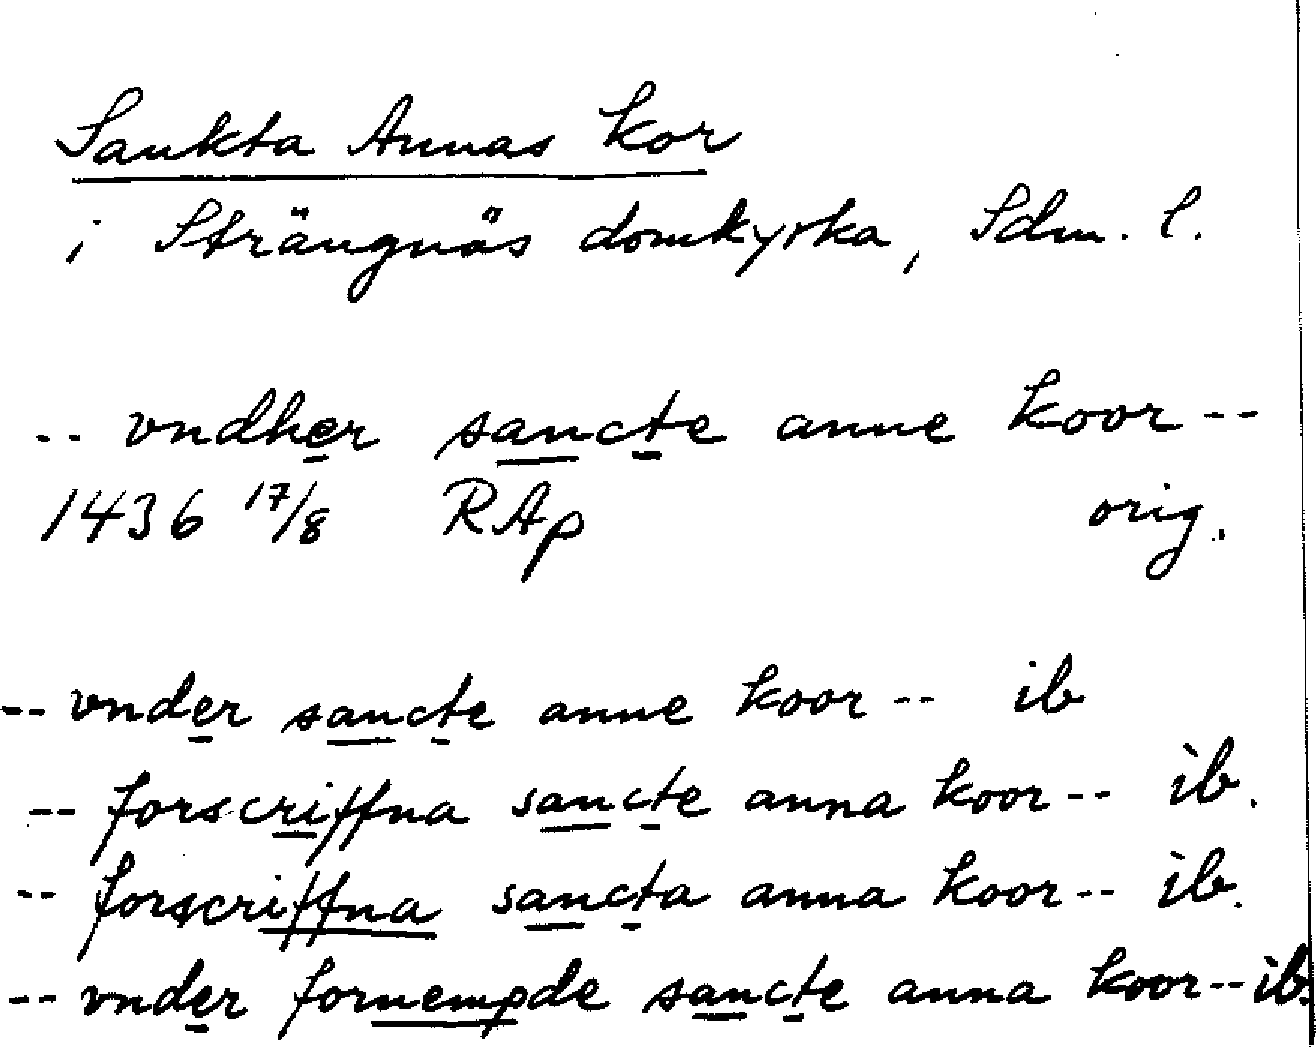 Sankta Annas kor
i Strängnäs domkyrka, Sdm. l.
-- vndher sancte anne koor --
1436 17/8 RAp orig.
-- vnder sancte anne koor -- ib
-- forscriffna sancte anna koor -- ib.
-- forscriffna sancta anna koor -- ib.
-- vnder fornempde sancte anna koor -- ib.